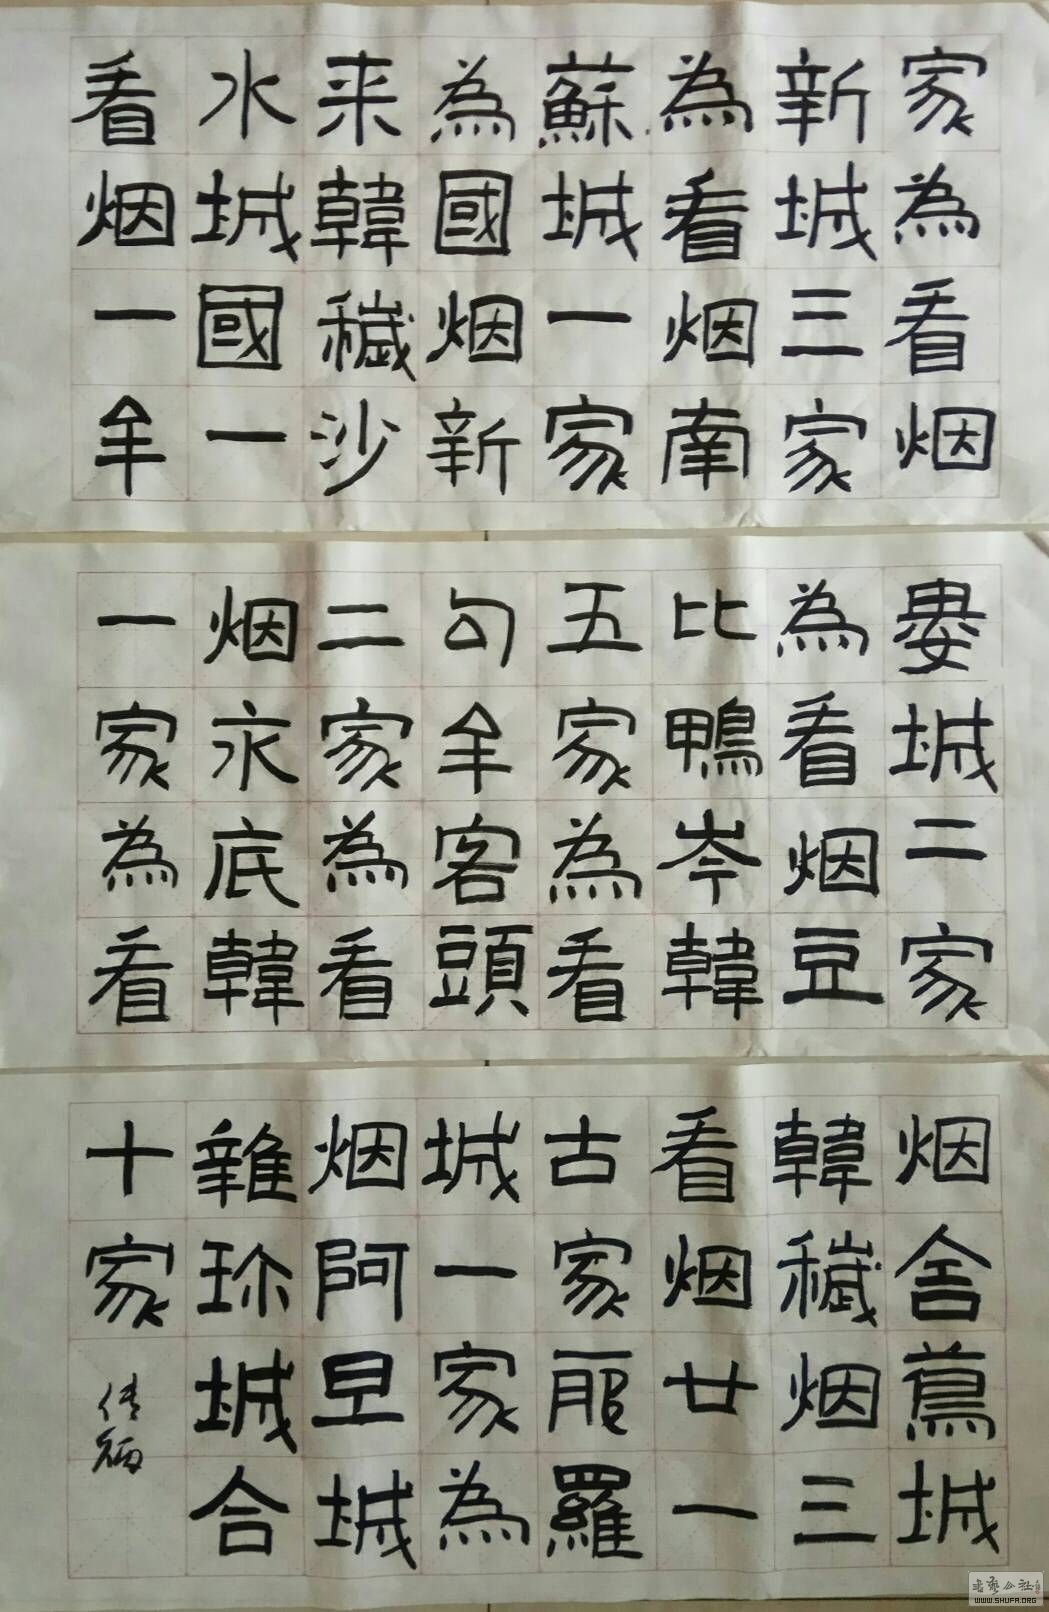 家為看烟
新城三家
為看烟南
蘇城一家
為國烟新
来韓穢沙
水城國一
看烟一牟
婁城二家
為看烟豆
比鴨岑韓
五家為看
句牟客頭
二家為看
烟永底韓
一家為看
烟舍蔦城
韓穢烟三
看烟廿一
古家羅
城一家為
烟阿旦城
雜珍城合
十家
書藝公社
WWW.SHUFA.ORG